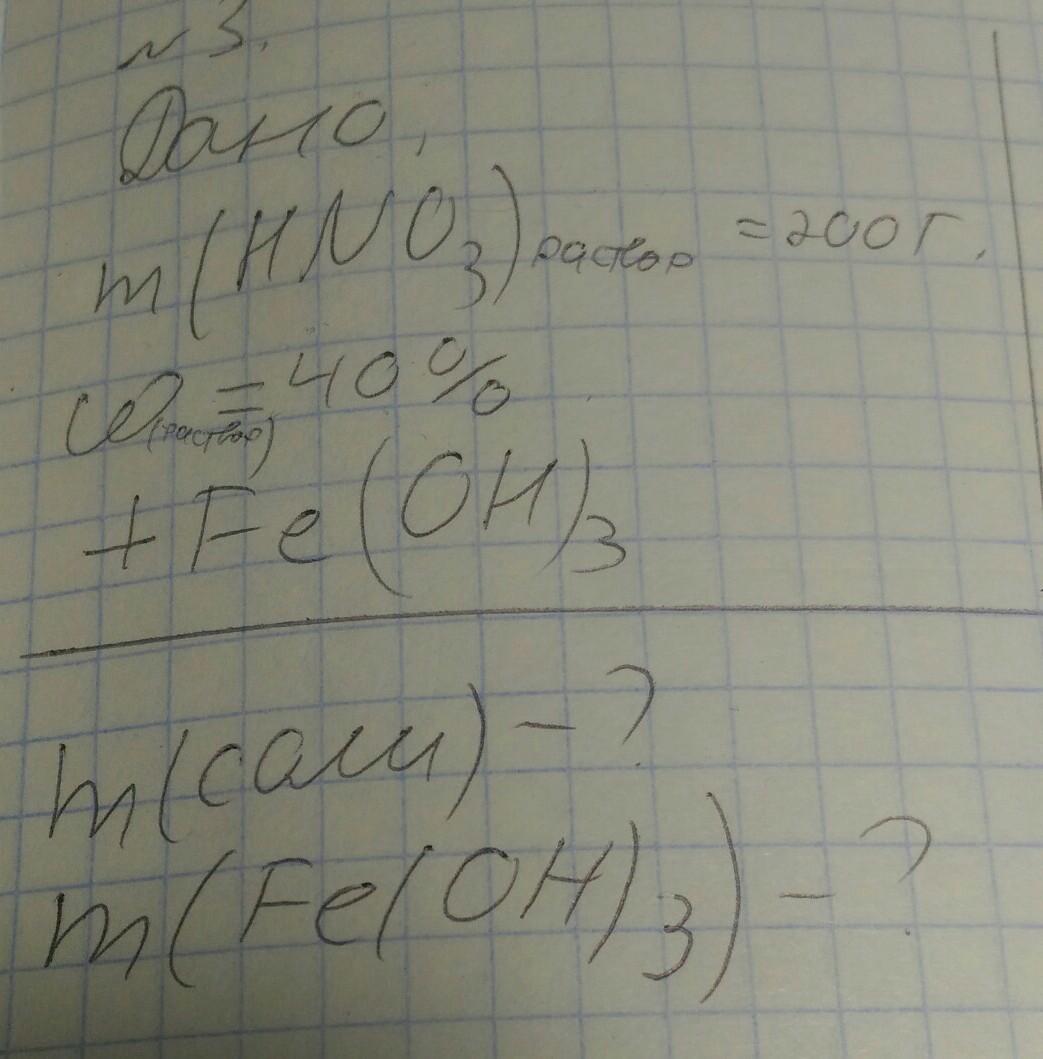 №3.
Дано,
m(HNO₃)раствор = 200г.
ω(раствор) = 40%
+Fe(OH)₃
m(соли) - ?
m(Fe(OH)₃) - ?